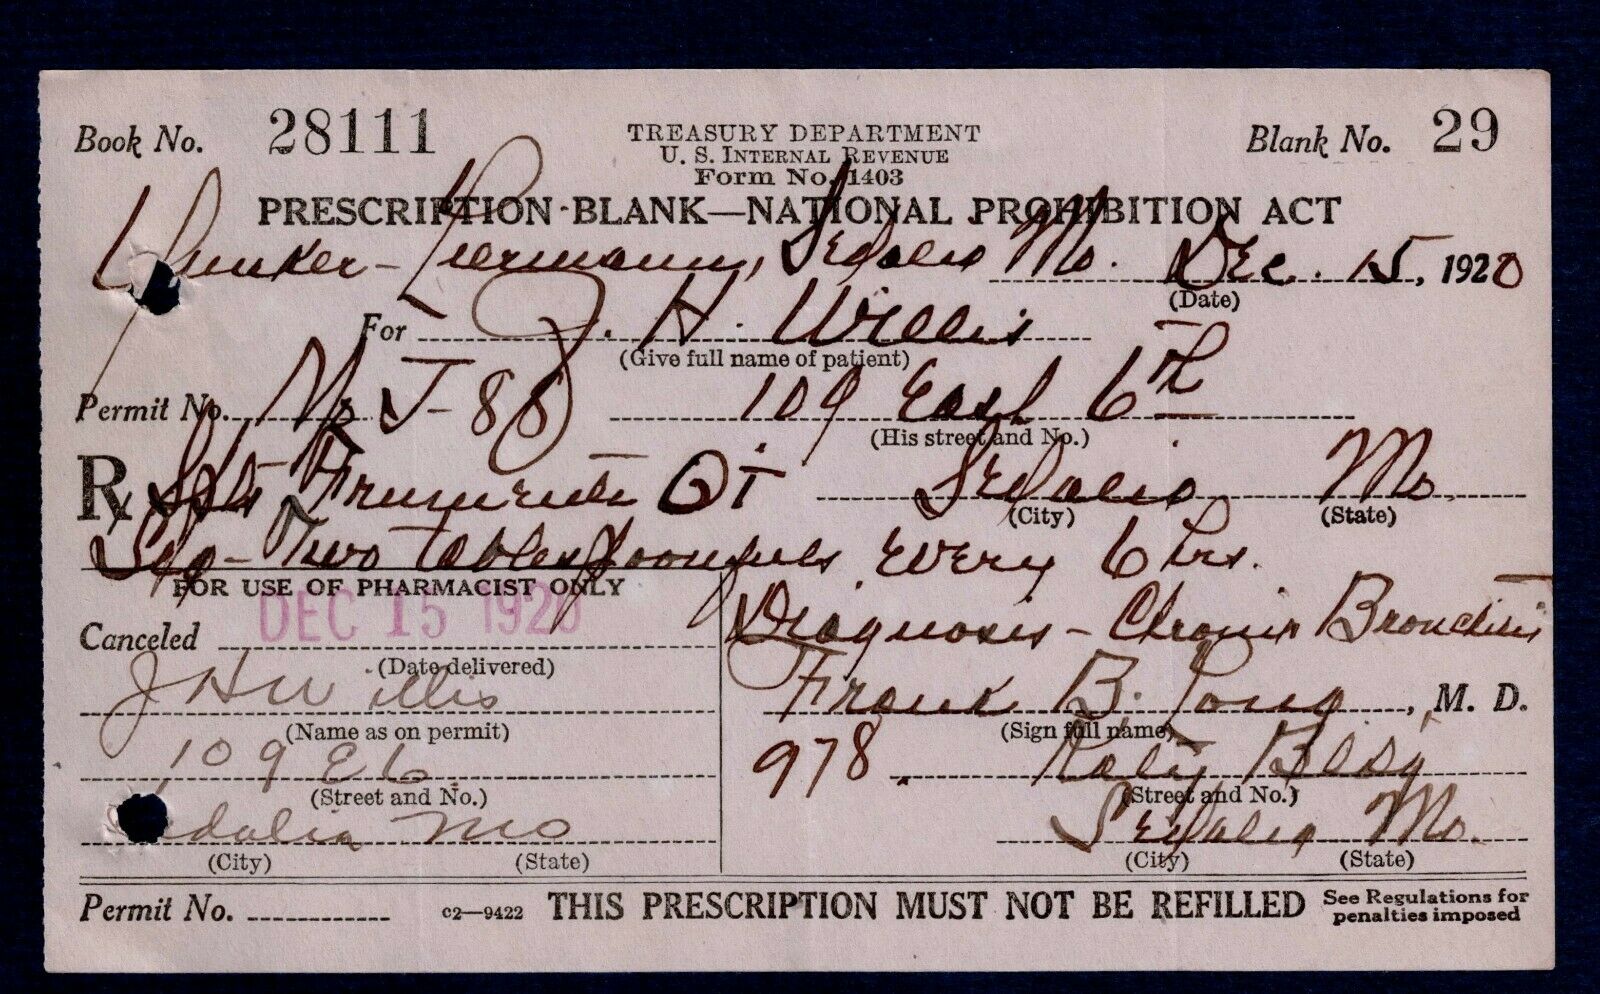 Book No. 28111
TREASURY DEPARTMENT
U. S. INTERNAL REVENUE
Form No. 1403
Blank No. 29
PRESCRIPTION BLANK—NATIONAL PROHIBITION ACT
Sedalia Mo. Dec. 15, 1920
(Date)
For J. H. Willis
(Give full name of patient)
Permit No. Mo J-88 109 East 6th
(His street and No.)
Rx Spts Frumenti OT Sedalia Mo.
(City) (State)
Sig - Two Tablespoonfuls every 6 hrs.
FOR USE OF PHARMACIST ONLY
Diagnosis - Chronic Bronchitis
Canceled DEC 15 1920
(Date delivered)
J H Willis
(Name as on permit)
Frank B. Long, M. D.
(Sign full name)
109 E 6
(Street and No.)
978 Katy Bldg
(Street and No.)
Sedalia Mo
(City) (State)
Sedalia Mo.
(City) (State)
Permit No. c2—9422 THIS PRESCRIPTION MUST NOT BE REFILLED See Regulations for
penalties imposed